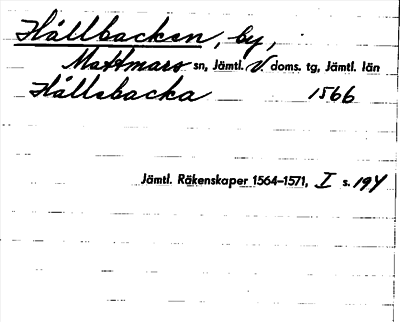 Hållbacken, by,
Mattmars sn, Jämtl. V. doms. tg, Jämtl. län
Hållebacka 1566
Jämtl. Räkenskaper 1564–1571, I s. 194